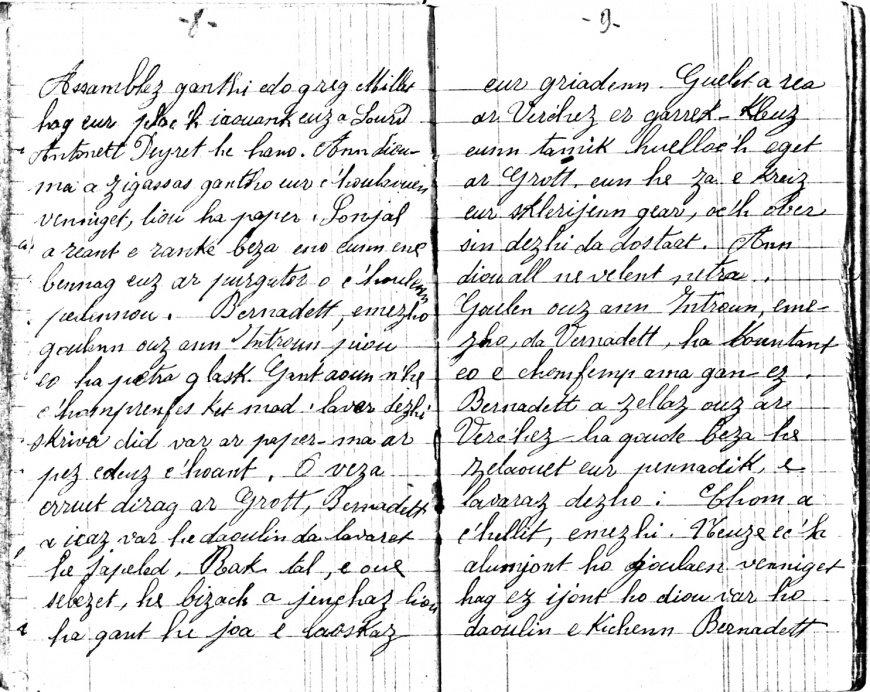 -8-
Assamblez ganthi edo greg Millet
hag eur plac'h iaouank euz a Lourd
Antonett Peyret he hano. Ann diou-
ma a zigassas gantho eur c'houlaouen
venniget, liou ha paper. Sonjal
a reant e ranké beza eno eunn ene
bennag euz ar purgator o c'houlenn
pedennou. Bernadett, emezho
goulenn ouz ann Introun piou
eo ha petra glask. Gant aoun n'he
c'homprenfes ket mad. lavar dezhi
skriva did var ar paper-ma ar
pez edeuz c'hoant. O veza
erruet dirag ar Grott, Bernadett
a ieaz var he daoulin da lavaret
he japeled. Rak tal, e oue
sebezet, he bizach a jenchaz liou
ha gant he joa e laoskaz
-9-
eur griadenn. Guelet a rea
ar Verc'hez er garrek-kleuz
eunn tamik huelloc'h eget
ar Grott, eun he za e kreiz
eur sklerijenn gear, oc'h ober
sin dezhi da dostaat. Ann
diou all ne velent netra.
Goulen ouz ann Introun, eme-
zho, da Vernadett, ha kountant
eo e chomfemp ama gan-ez.
Bernadett a zellaz ouz ar
Verc'hez ha goude beza he
zelaouet eur pennadik, e
lavaraz dezho : Chom a
c'hellit, emezhi. Neuze ec'h
alumjont ho goulaen venniget
hag ez ijont ho diou var ho
daoulin e kichenn Bernadett